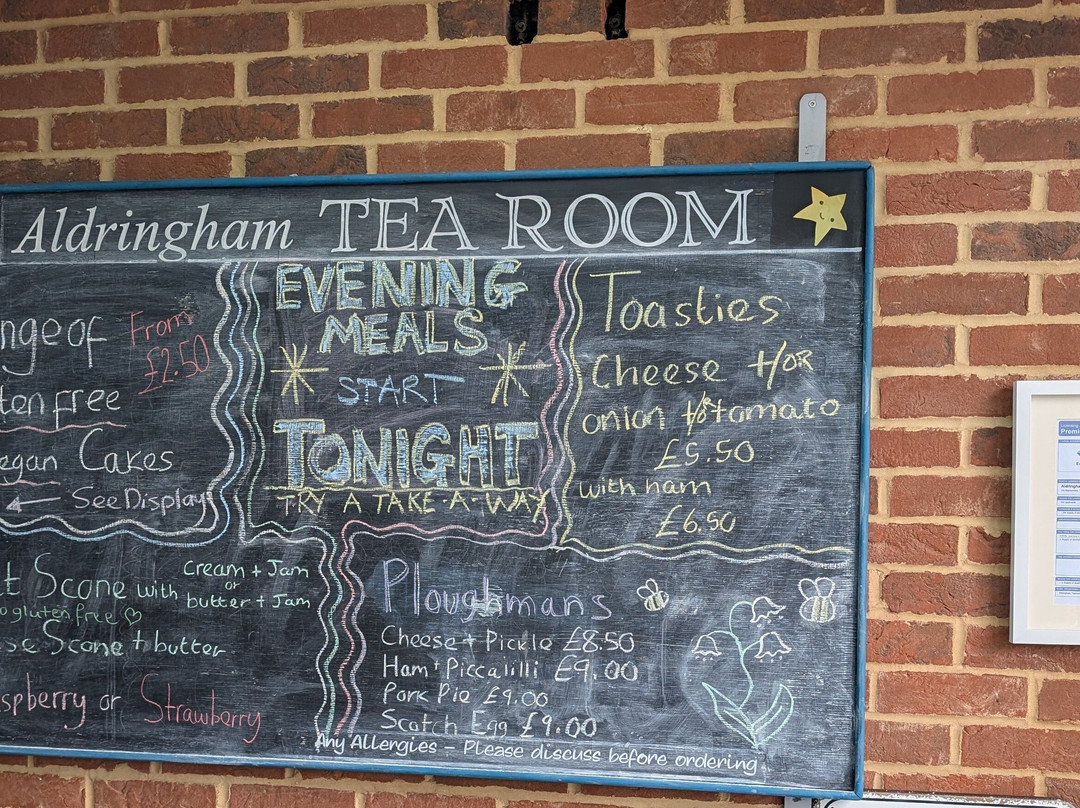 Aldringham TEA ROOM
nge of From
£2.50
ten free
egan Cakes
See Display
EVENING
MEALS
START
TONIGHT
TRY A TAKE-A-WAY
Toasties
Cheese +/OR
onion +/or tomato
£5.50
with ham
£6.50
t Scone with cream + Jam
or
butter + Jam
o gluten free
se Scone + butter
spberry or Strawberry
Ploughmans
Cheese + Pickle £8.50
Ham + Piccalilli £9.00
Pork Pie £9.00
Scotch Egg £9.00
Any Allergies - Please discuss before ordering